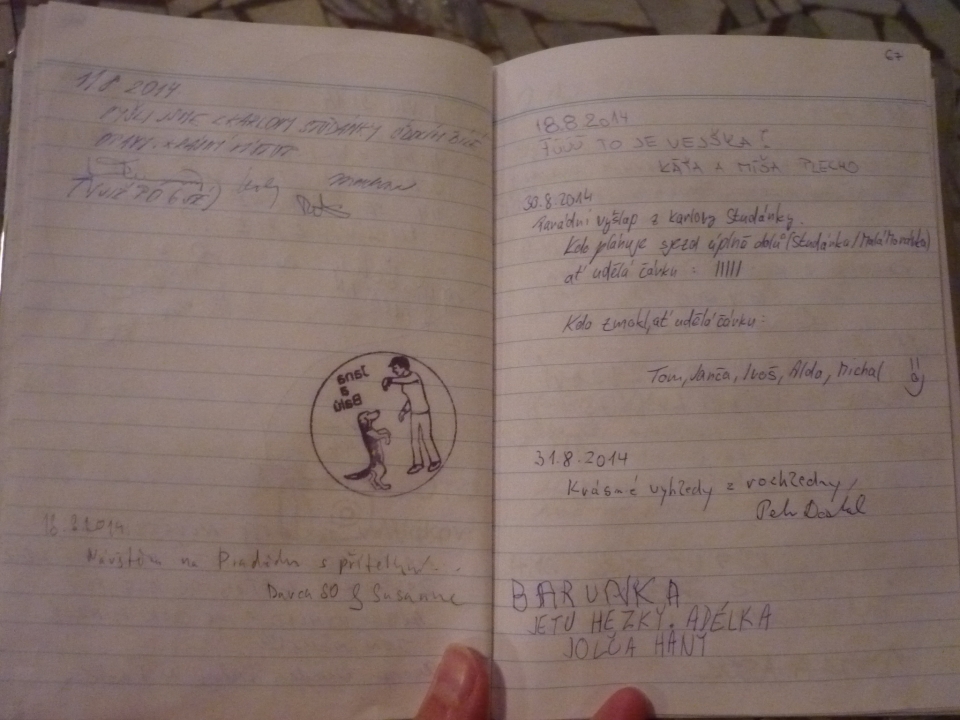 1/8 2014
VYŠLI JSME Z KARLOVY STUDÁNKY
16.8.2014
Návštěva na Pradědu s přítelkyní
David SO & Susanne
Jana
a
Baki
67
18.8.2014
FÚÚÚ TO JE VEJŠKA!
KÁŤA A MÍŠA PLECHO
30.8.2014
Parádní výšlap z Karlovy Studánky.
Kdo plánuje sjezd úplně dolů (Studánka/Malá Morávka)
ať udělá čárku : IIIII
Kdo zmokl, ať udělá čárku:
Tom, Janča, Ivoš, Alda, Michal
31.8.2014
Krásné výhledy z rozhledny
Petr
BARUNKA
JETU HEZKY. ADÉLKA
JOLČA HANÝ